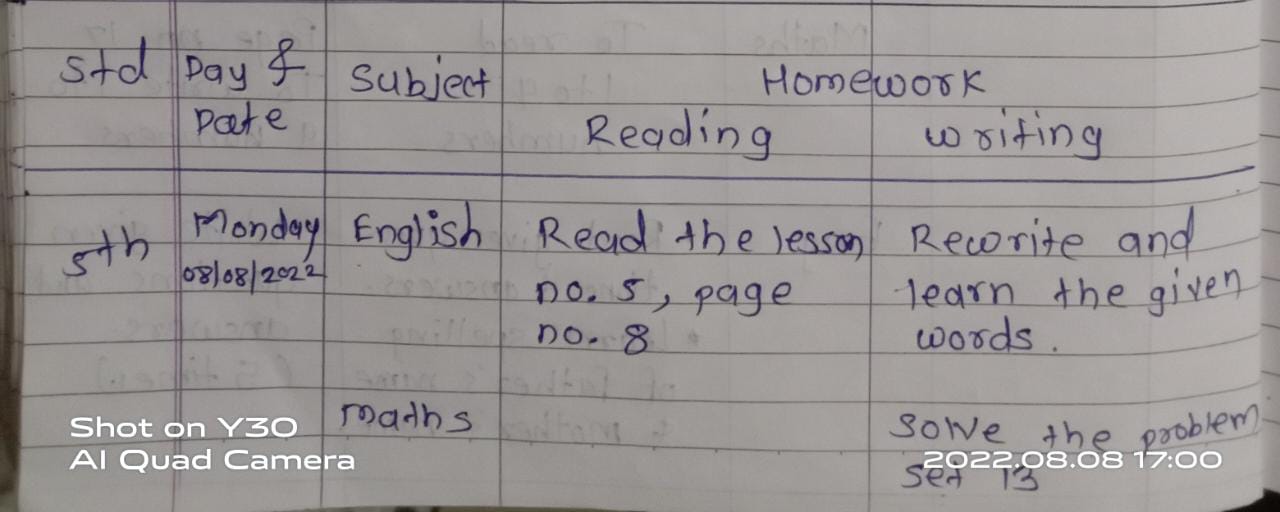 Std Day & Subject Homework
Date Reading Writing
5th Monday English Read the lesson Rewrite and
08/08/2022 no. 5, page learn the given
no. 8 words.
Maths Solve the problem
set 13
Shot on Y30
AI Quad Camera
2022.08.08 17:00